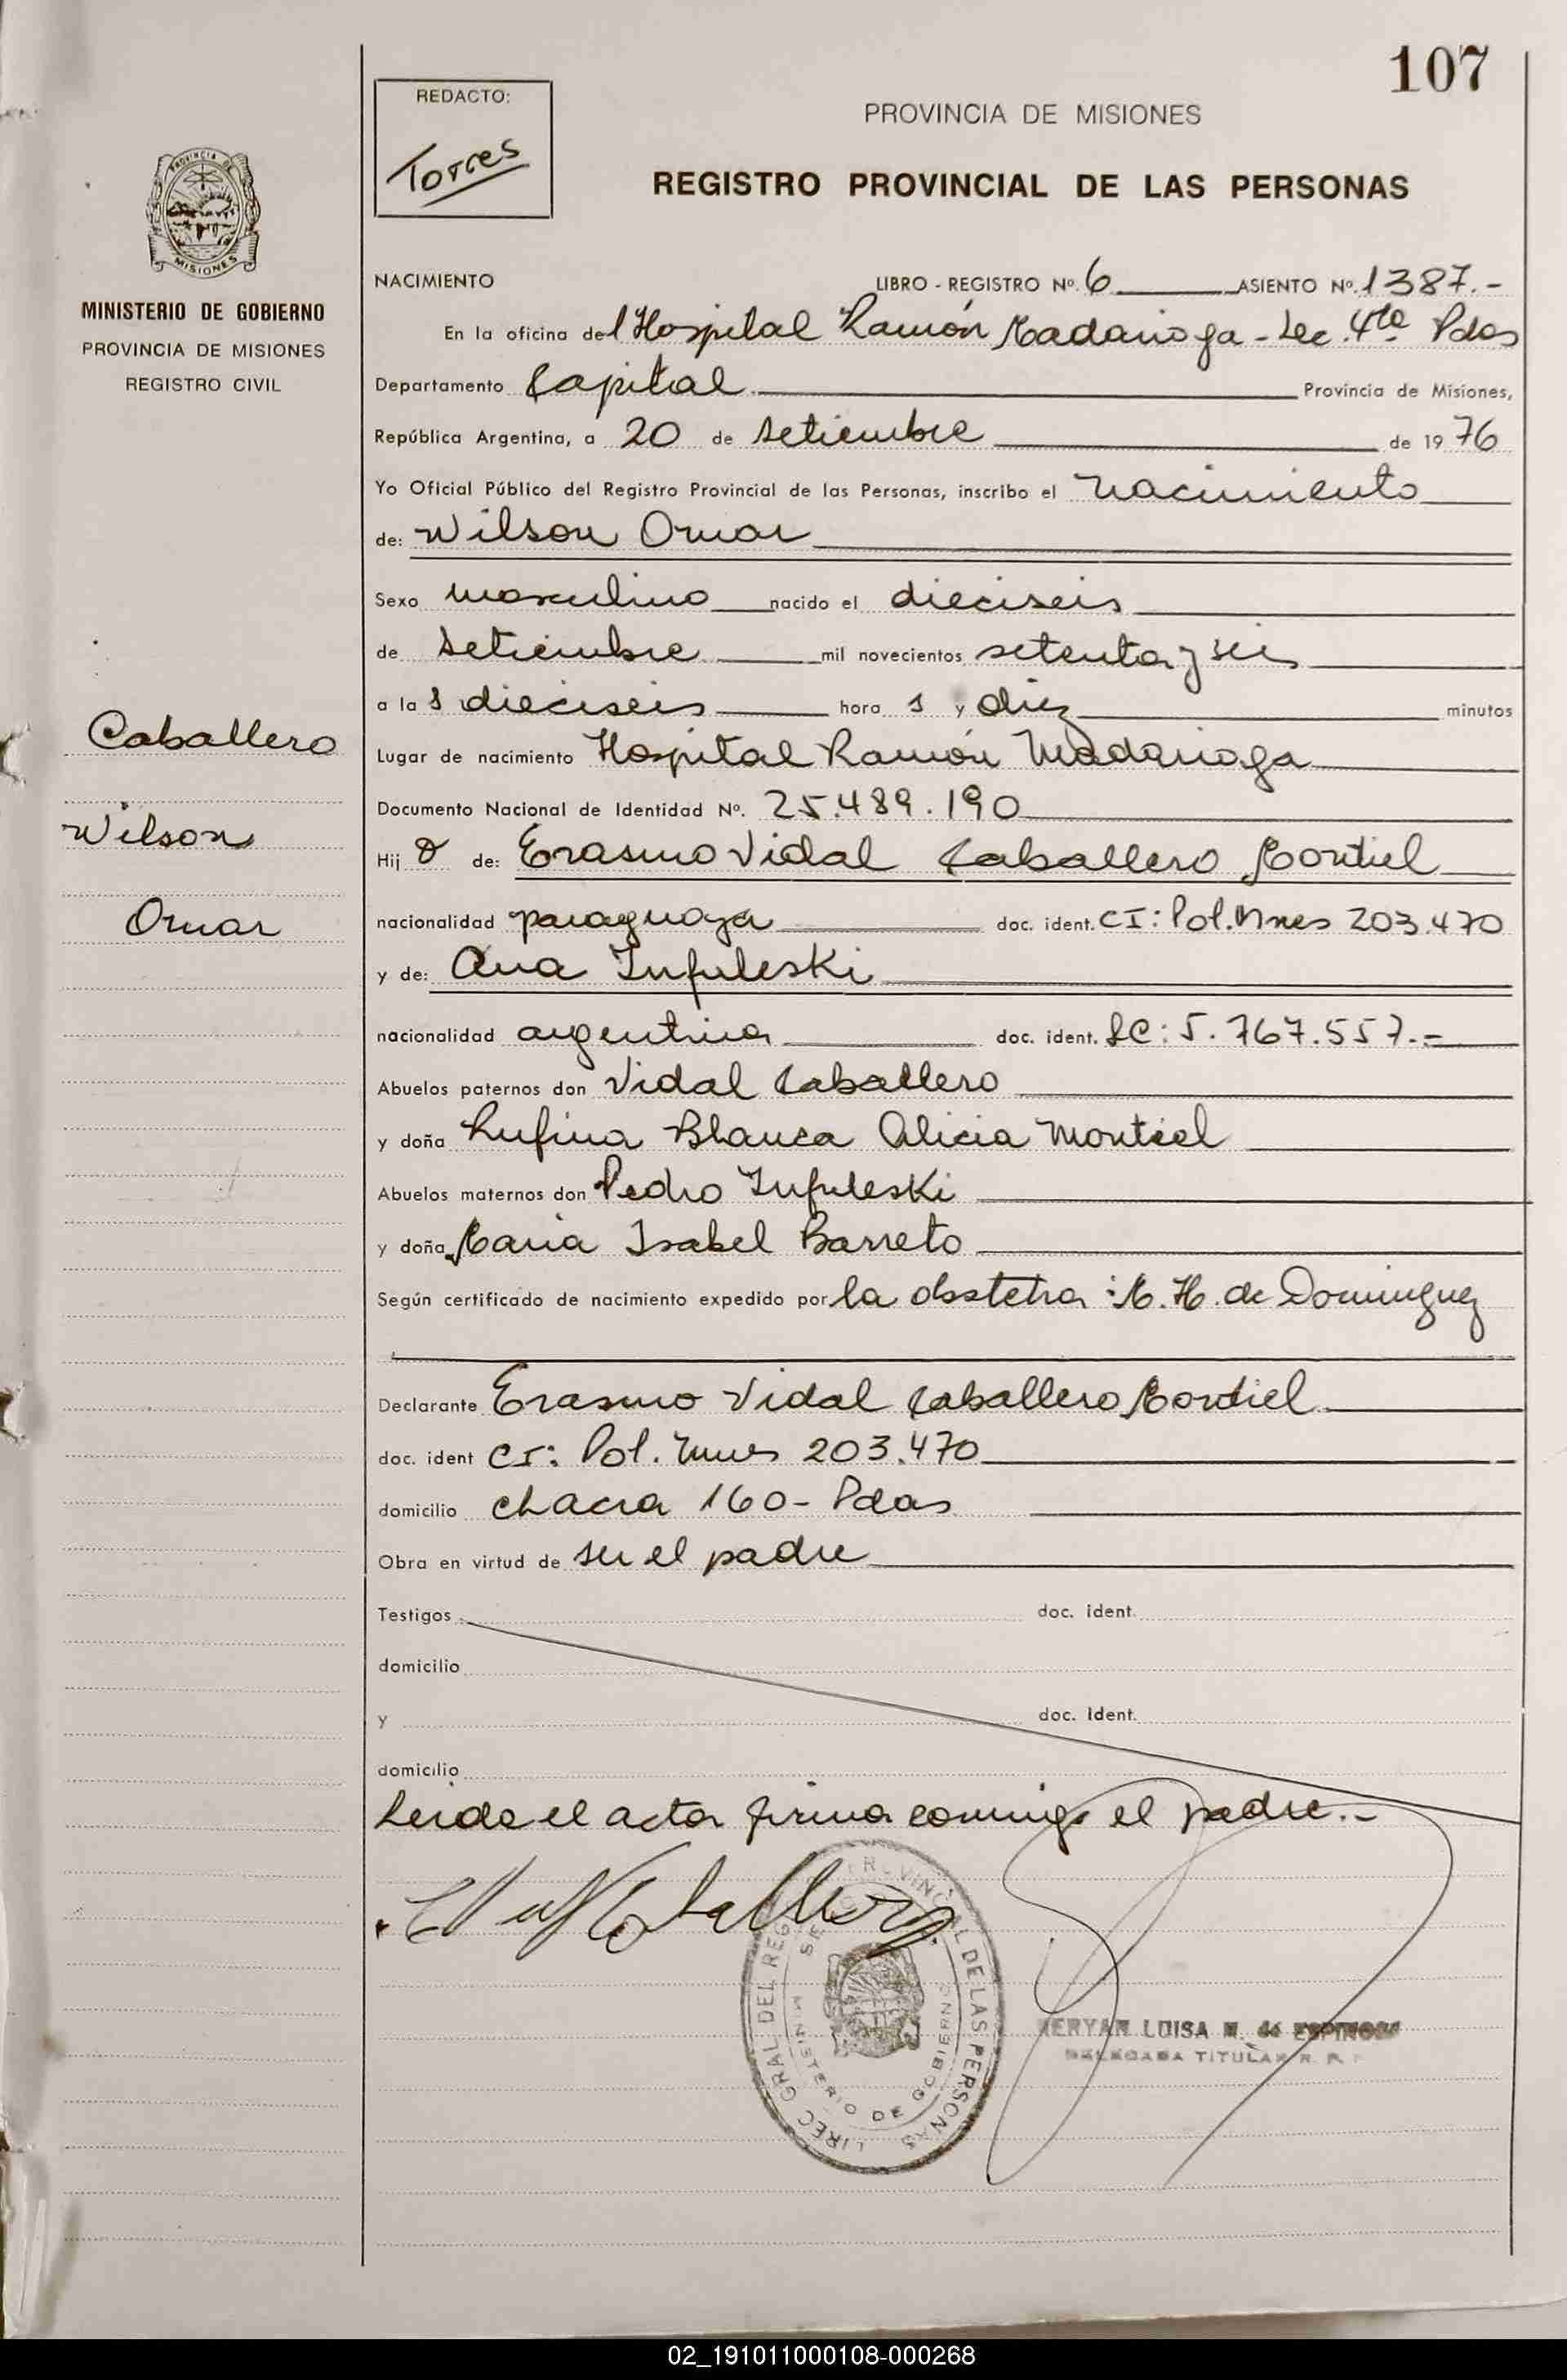 107
REDACTO:
Torres
PROVINCIA DE MISIONES
REGISTRO PROVINCIAL DE LAS PERSONAS
PROVINCIA DE
MISIONES
MINISTERIO DE GOBIERNO
PROVINCIA DE MISIONES
REGISTRO CIVIL
NACIMIENTO LIBRO - REGISTRO Nº. 6 ASIENTO Nº. 1387.-
En la oficina del Hospital Ramón Madariaga - Sec. 4ta Pdas
Departamento Capital Provincia de Misiones,
República Argentina, a 20 de setiembre de 1976
Yo Oficial Público del Registro Provincial de las Personas, inscribo el nacimiento
de: Wilson Omar
Sexo masculino nacido el dieciseis
de setiembre mil novecientos setenta y seis
a las dieciseis horas y diez minutos
Caballero
Wilson
Omar
Lugar de nacimiento Hospital Ramón Madariaga
Documento Nacional de Identidad Nº. 25.489.190
Hijo de: Erasmo Vidal Caballero Montiel
nacionalidad paraguaya doc. ident. CI: Pol. Mnes 203.470
y de: Ana Infuleski
nacionalidad argentina doc. ident. LC: 5.767.557.=
Abuelos paternos don Vidal Caballero
y doña Rufina Blanca Alicia Montiel
Abuelos maternos don Pedro Infuleski
y doña María Isabel Barreto
Según certificado de nacimiento expedido por la obstetra: M. H. de Dominguez
Declarante Erasmo Vidal Caballero Montiel
doc. ident CI: Pol. Mnes 203.470
domicilio chacra 160 - Pdas
Obra en virtud de ser el padre
Testigos doc. ident.
domicilio
y doc. ident.
domicilio
Leida el acta firma conmigo el padre.-
Caballero
DIREC GRAL DEL REG PROVINCIAL DE LAS PERSONAS
MINISTERIO DE GOBIERNO
LUISA M. de ESPINOSA
DELEGADA TITULAR R. P.
02_191011000108-000268